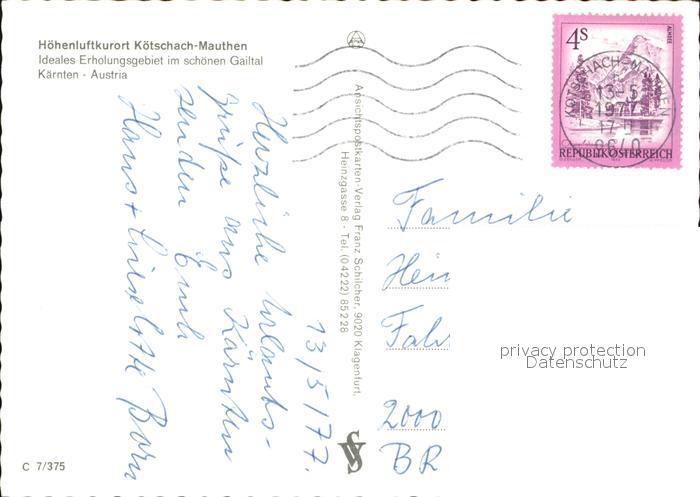 Höhenluftkurort Kötschach-Mauthen
Ideales Erholungsgebiet im schönen Gailtal
Kärnten - Austria
4S
ALMSEE
REPUBLIK ÖSTERREICH
KÖTSCHACH-MAUTHEN
13-5
1977
17-
9640
13/5/77.
Herzliche Urlaubs-
grüße aus Kärnten
senden Euch
Hans + Lieselotte Born
Ansichtspostkarten-Verlag Franz Schilcher, 9020 Klagenfurt,
Heinzgasse 8 - Tel. (04222) 85 2 28
Familie
Hein
Fah
2000
BR
privacy protection
Datenschutz
C 7/375